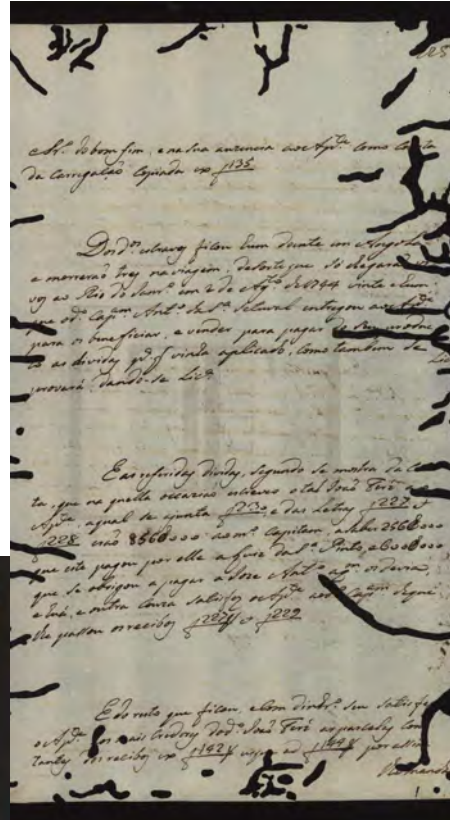 125
M.el do bom fim, e na sua auzencia ao Ap.do como Consta
da Carregação Copiada ex f135
Dos d.os escravos ficou hum doente em Angola
e morrerão tres na viagem, de sorte que só chegarão vi
vos ao Rio de Janr.o em 2 de Ag.to de 1744 vinte e hum
que o d.o Cap.am Ant.o da S.a Setuval entregou ao Ap.do
para os beneficiar, e vender para pagar do seu produc
to as dividas p.a q' vinha aplicado, como tambem se
provará dando-se Lic.a
Lic
E as referidas dividas, segundo se mostra da Ca
ta, que na quella occazião escreveo o tal João Frr.a ao
Ap.do, a qual se ajunta e das Letras f227 e
f228 erão 856$000 ao m.o Capitam, a saber 256$000
que este pagou por elle a Jose da S.a Pinto, e 600$000
que se obrigou a pagar a Jose Ant.o
e huã, e outra Couza satisfez o Ap.do ao d.o Cap.am de que
lhe passou os recibos f227 e f229
E do resto que ficou, e com dinhr.o seu satisfez
o Ap.do aos mais Credores do d.o João Frr.a as parcelas Cons
tantes dos recibos ex f142 usque ad f149 por assim